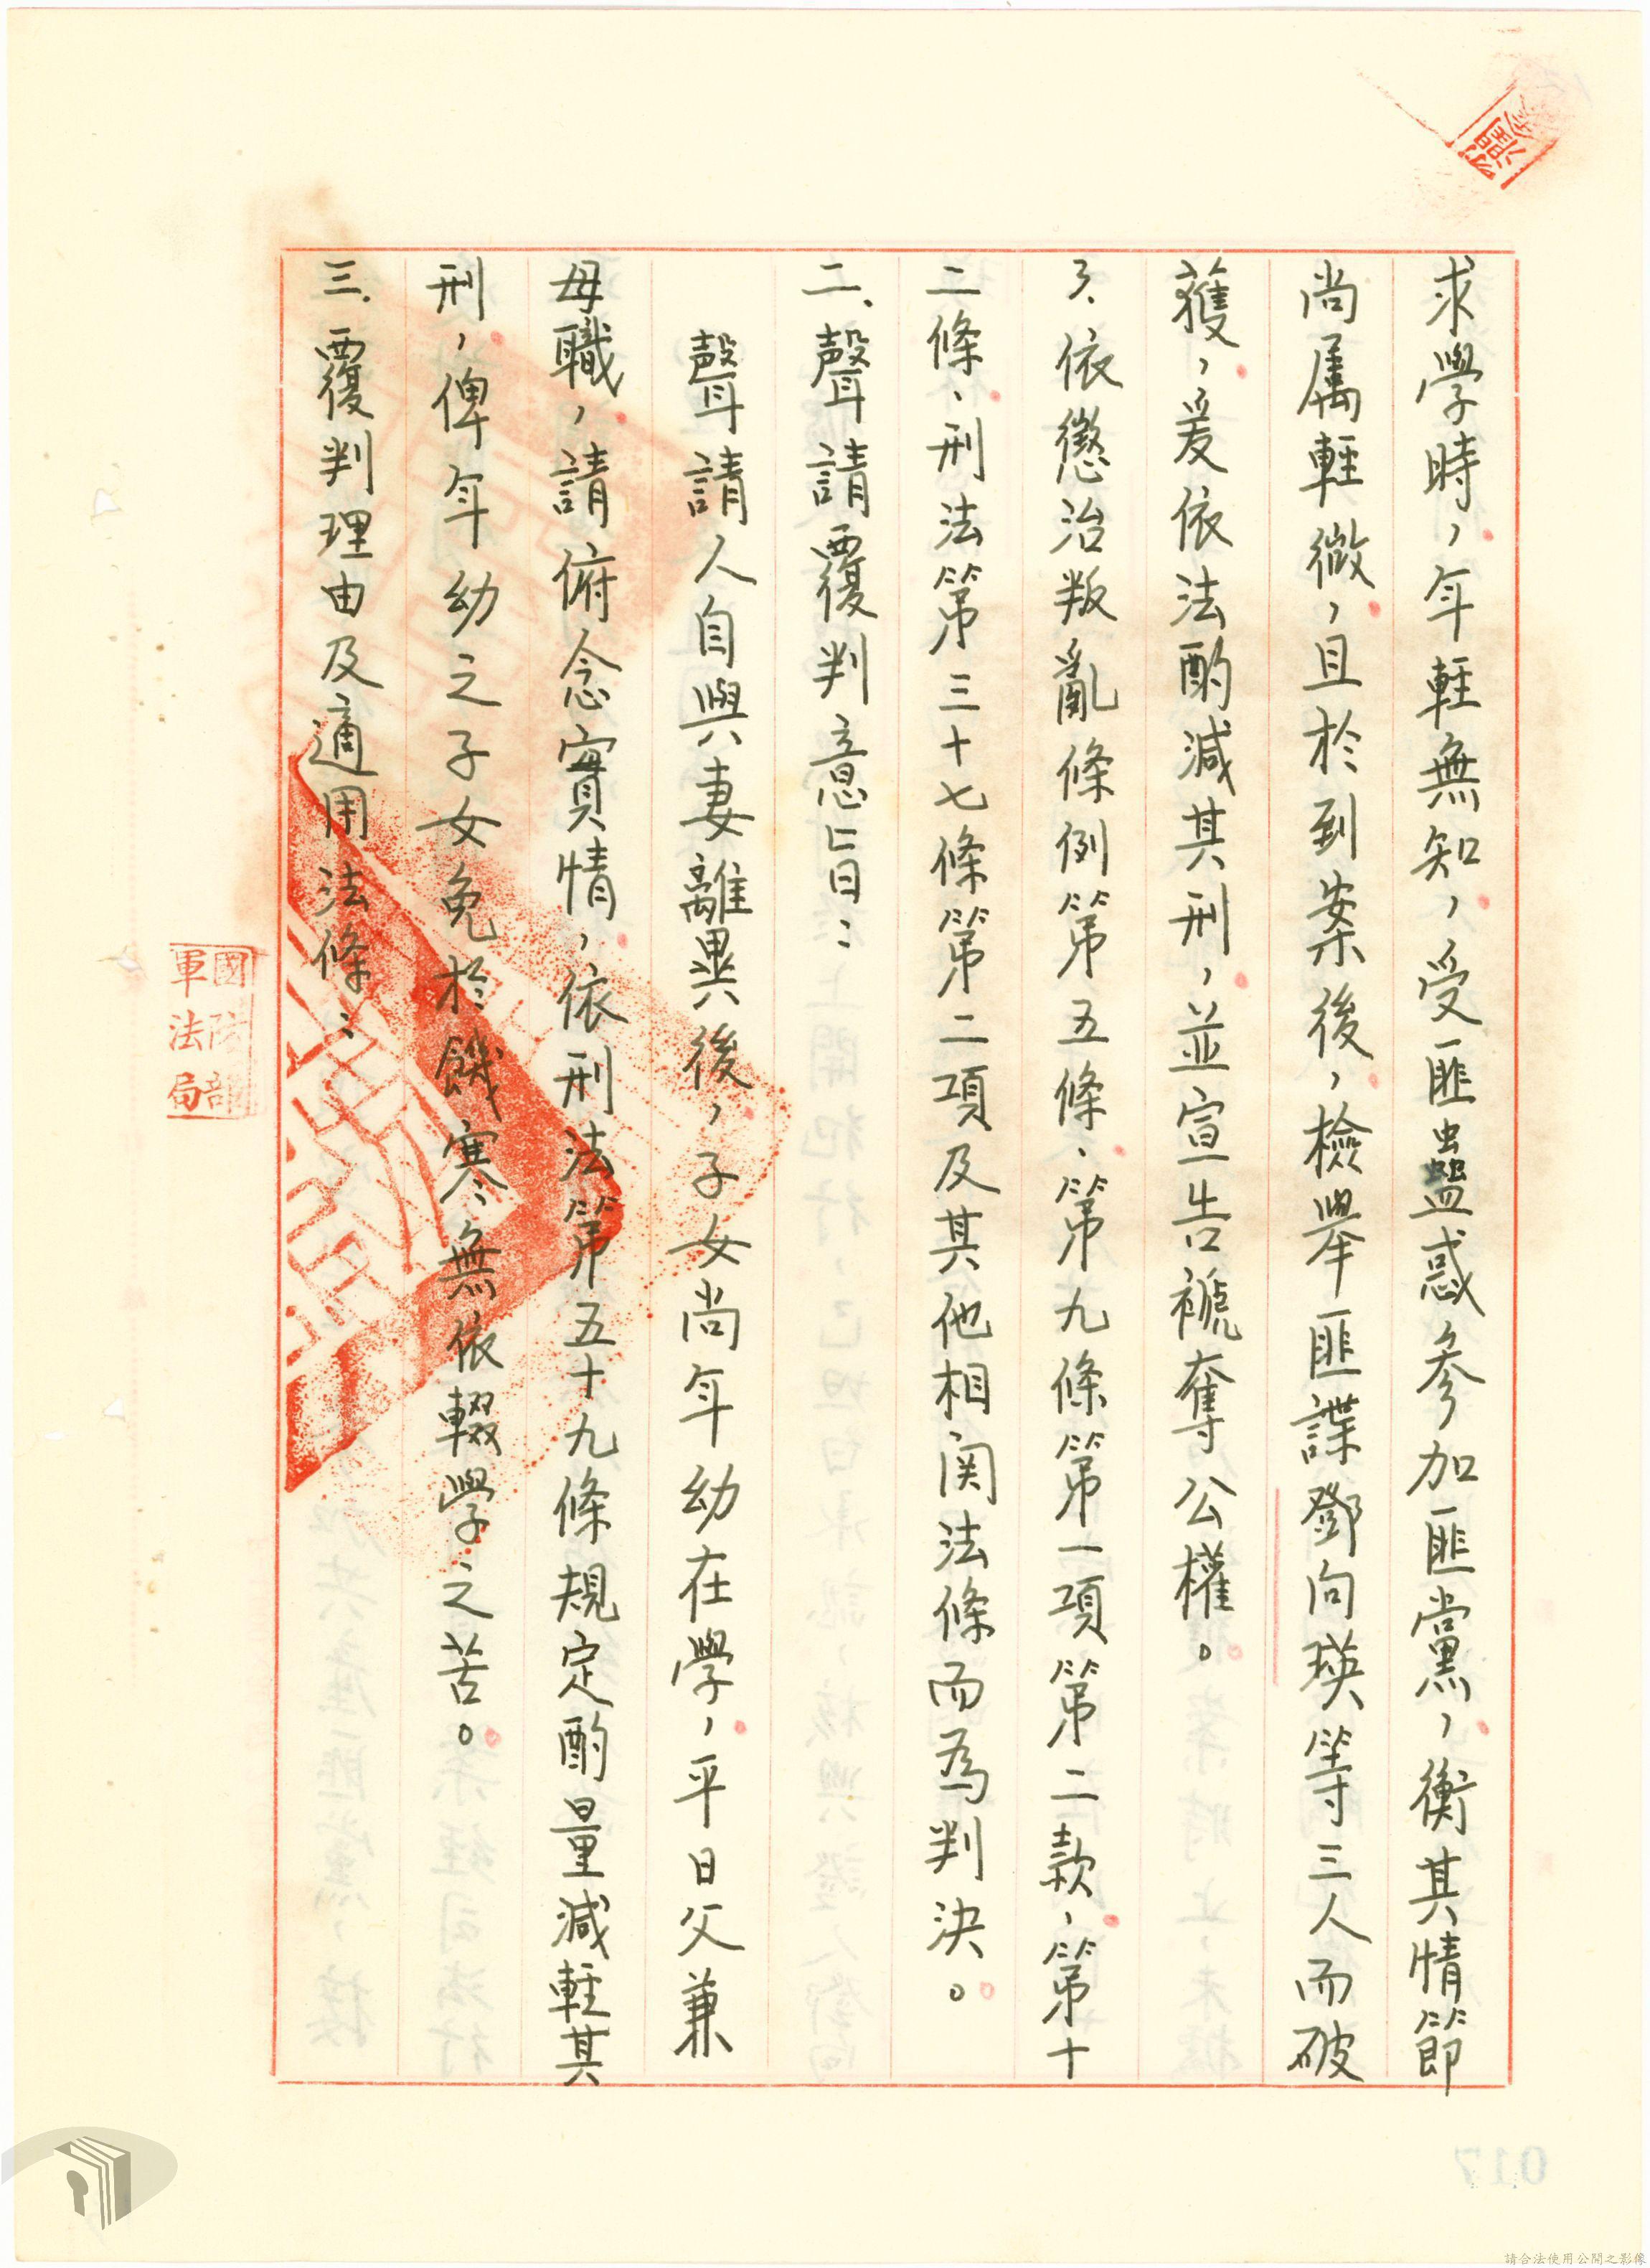 求學時，年輕無知，受匪蠱惑參加匪黨，衡其情節
尚属輕微，且於到案後，檢舉匪諜鄧向瑛等三人而破
獲，爰依法酌減其刑，並宣告褫奪公權。
3、依懲治叛亂條例第五條、第九條第一項第二款，第十
二條、刑法第三十七條第二項及其他相関法條而為判決。
二、聲請覆判意旨：
聲請人自與妻離異後，子女尚年幼在學，平日父兼
母職，請俯念實情，依刑法第五十九條規定酌量減輕其
刑，俾年幼之子女免於饑寒無依輟學之苦。
三、覆判理由及適用法條：
國防部
軍法局
017
請合法使用公開之影像